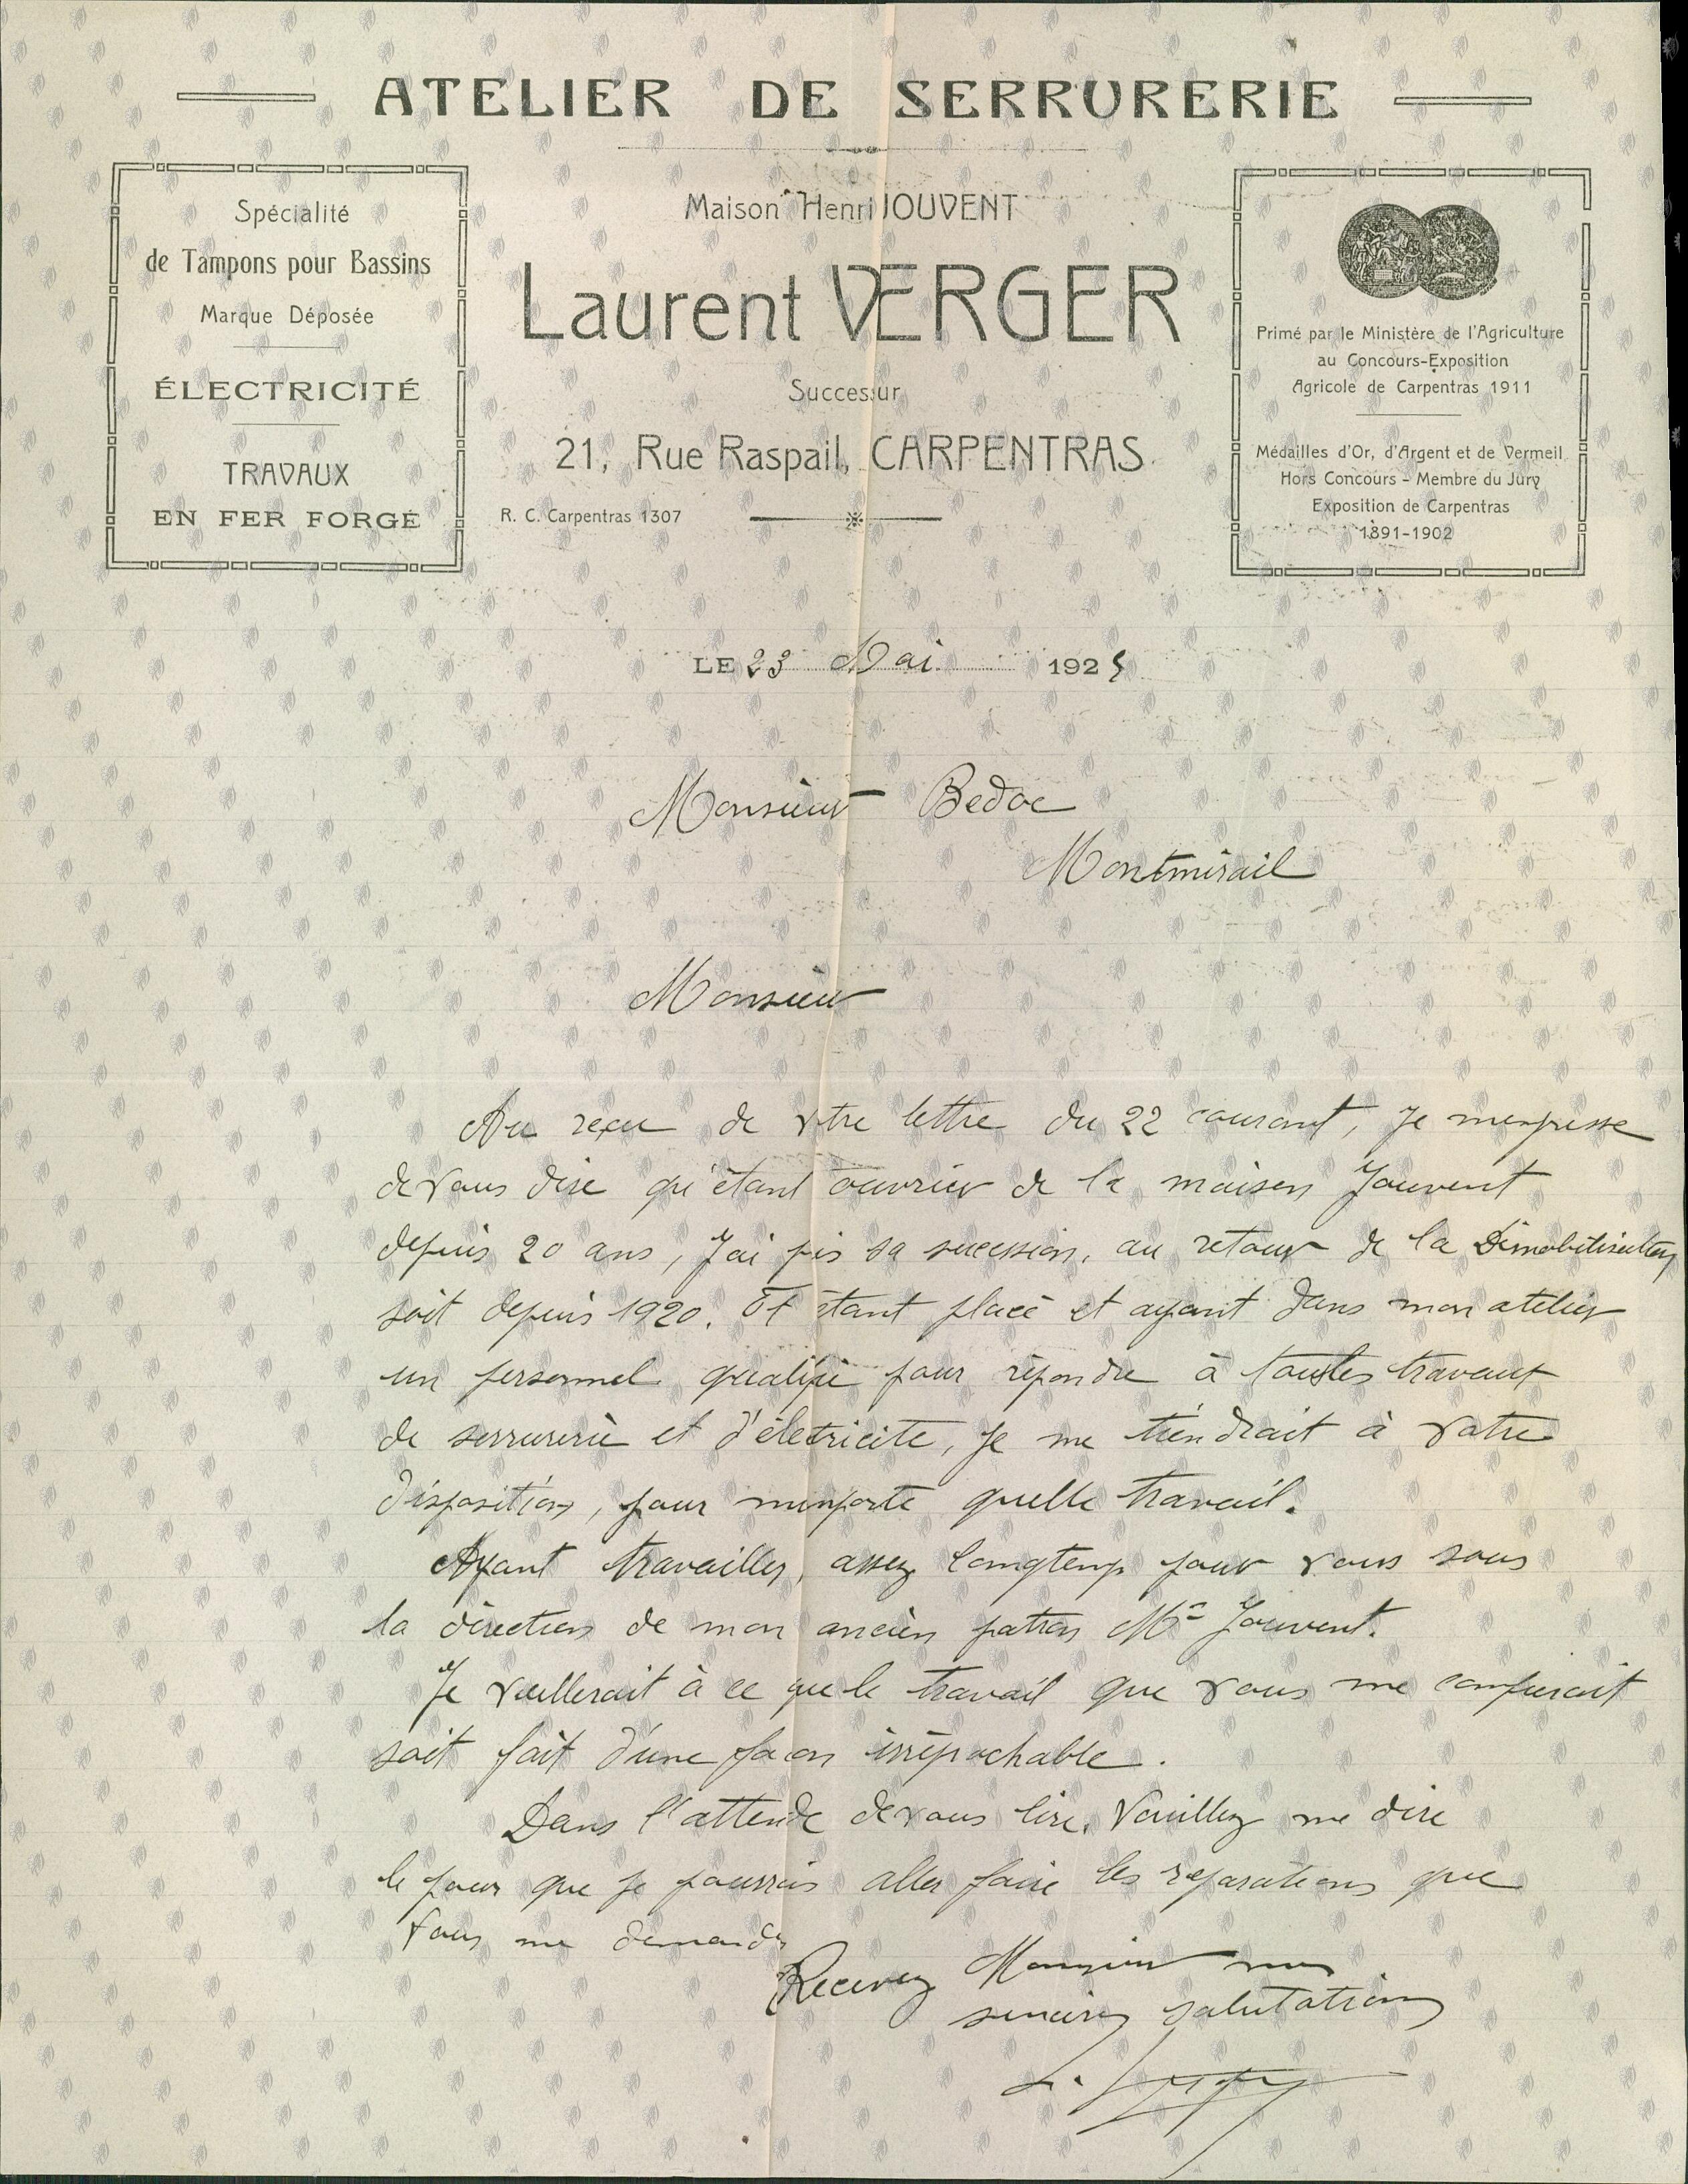 ATELIER DE SERRURERIE
Spécialité
de Tampons pour Bassins
Marque Déposée
ÉLECTRICITÉ
TRAVAUX
EN FER FORGÉ
Maison Henri JOUVENT
Laurent VERGER
Successur
21, Rue Raspail, CARPENTRAS
R. C. Carpentras 1307
Primé par le Ministère de l'Agriculture
au Concours-Exposition
Agricole de Carpentras 1911
Médailles d'Or, d'Argent et de Vermeil
Hors Concours - Membre du Jury
Exposition de Carpentras
1891-1902
LE 23 Mai 1925
Monsieur Bedoc
Montmirail
Monsieur
Au reçu de vtre lettre du 22 courant, je mempresse
de vous dire qu'étant ouvrier de la maison Jouvent
depuis 20 ans, J'ai pis sa sucession, au retour de la Démobilisation
soit depuis 1920. Et étant placé et ayant dans mon atelier
un personnel qualifié pour répondre à toustes travaux
de serrurerie et d'életricite, je me tiendrait à votre
disposition, pour minporte quelle travail.
Ayant travailler, assez longtemp pour vous sous
la direction de mon ancien patron Mr Jouvent.
Je veillerait à ce que le travail que vous me confierait
soit fait d'une facon irréprochable.
Dans l'attende de vous lire. Veuillez me dire
le jour que je pourrais aller faire les reparations que
vous me demandez
Recevez Monsieur mes
sincères salutations